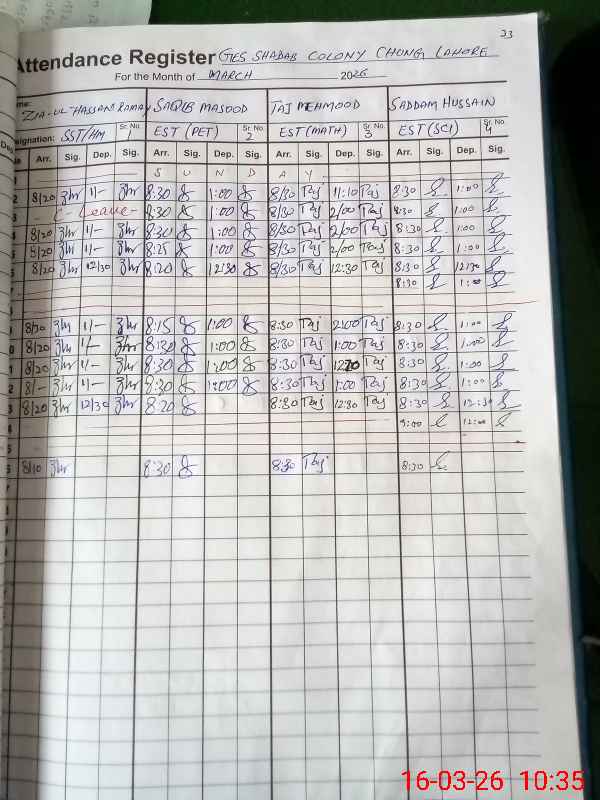 33
Attendance Register GES SHADAB COLONY CHUNG LAHORE
For the Month of MARCH 2026
ZIA-UL-HASSAN RAMAY SAQIB MASOOD TAJ MEHMOOD SADDAM HUSSAIN
Designation: SST/HM Sr. No. 1 EST (PET) Sr. No. 2 EST (MATH) Sr. No. 3 EST (SCI) Sr. No. 4
Arr. Sig. Dep. Sig. Arr. Sig. Dep. Sig. Arr. Sig. Dep. Sig. Arr. Sig. Dep. Sig.
S U N D A Y
8/20 1/- 8:30 1:00 8/30 Taj 11:10 Taj 8:30 1:00
C-Leave- 8:30 1:00 8/30 Taj 2/00 Taj 8:30 1:00
8/20 1/- 8:30 1:00 8/30 Taj 2/00 Taj 8:30 1:00
8/20 1/- 8:25 1:00 8/30 Taj 2/00 Taj 8:30 1:00
8/20 12/30 8:20 12:30 8/30 Taj 12:30 Taj 8:30 12:30
8:30 1:00
8/20 1/- 8:15 1:00 8:30 Taj 2:00 Taj 8:30 1:00
8/20 1/- 8:30 1:00 8:30 Taj 1:00 Taj 8:30 1:00
8/20 1/- 8:30 1:00 8:30 Taj Taj 8:30 1:00
8/- 1/- 8:30 1:00 8:30 Taj 1:00 Taj 8:30 1:00
8/20 12/30 8:20 8:30 Taj 12:30 Taj 8:30 12:30
9:00 12:00
8/10 8:30 8:30 Taj 8:30
16-03-26 10:35